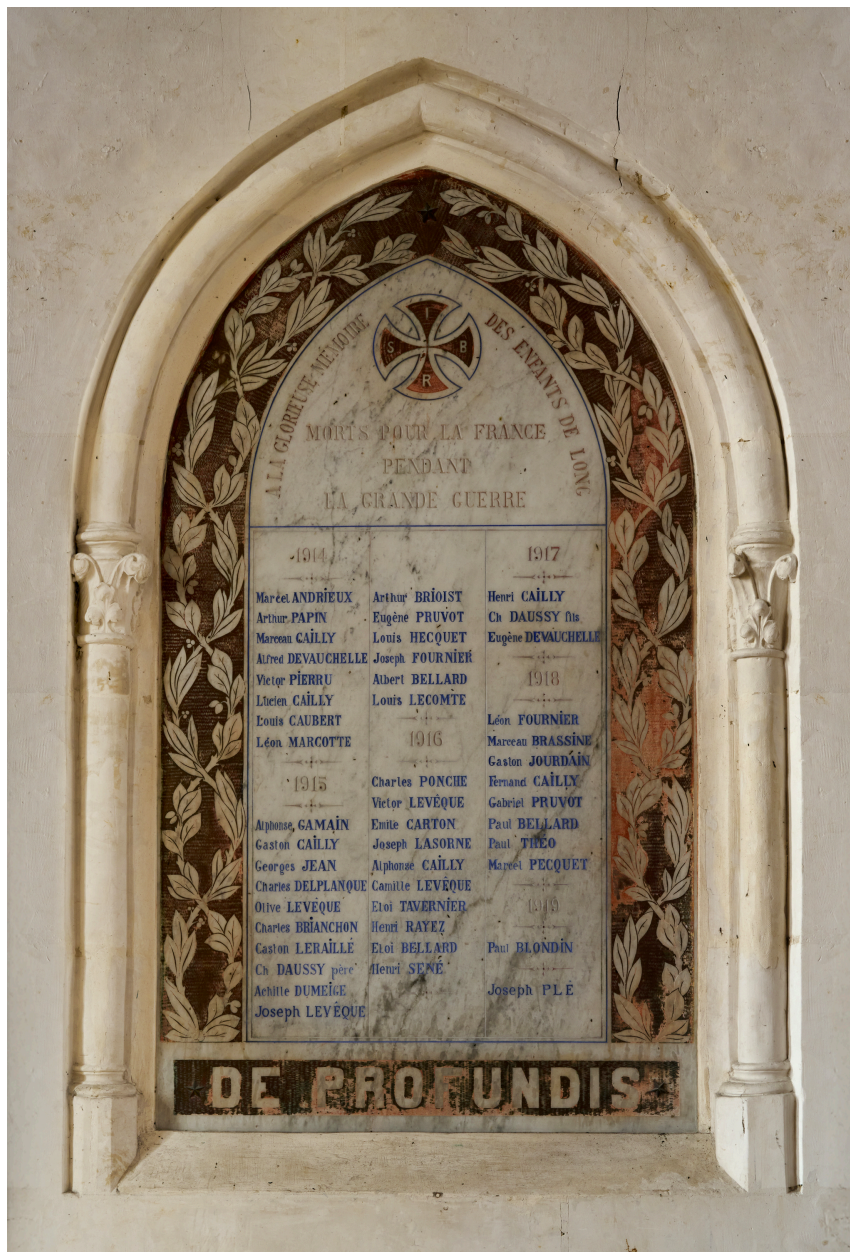 I
S B
R
A LA GLORIEUSE MÉMOIRE DES ENFANTS DE LONG
MORTS POUR LA FRANCE
PENDANT
LA GRANDE GUERRE
1914
Marcel ANDRIEUX
Arthur PAPIN
Marceau CAILLY
Alfred DEVAUCHELLE
Victor PIERRU
Lucien CAILLY
Louis CAUBERT
Léon MARCOTTE
1915
Alphonse GAMAIN
Gaston CAILLY
Georges JEAN
Charles DELPLANQUE
Olive LEVÉQUE
Charles BRIANCHON
Gaston LERAILLÉ
Ch DAUSSY père
Achille DUMEIGE
Joseph LEVÉQUE
Arthur BRIOIST
Eugène PRUVOT
Louis HECQUET
Joseph FOURNIER
Albert BELLARD
Louis LECOMTE
1916
Charles PONCHE
Victor LEVÉQUE
Emile CARTON
Joseph LASORNE
Alphonse CAILLY
Camille LEVÉQUE
Eloi TAVERNIER
Henri RAYEZ
Eloi BELLARD
Henri SENÉ
1917
Henri CAILLY
Ch DAUSSY fils
Eugène DEVAUCHELLE
1918
Léon FOURNIER
Marceau BRASSINE
Gaston JOURDAIN
Fernand CAILLY
Gabriel PRUVOT
Paul BELLARD
Paul THÉO
Marcel PECQUET
1919
Paul BLONDIN
Joseph PLÉ
DE PROFUNDIS